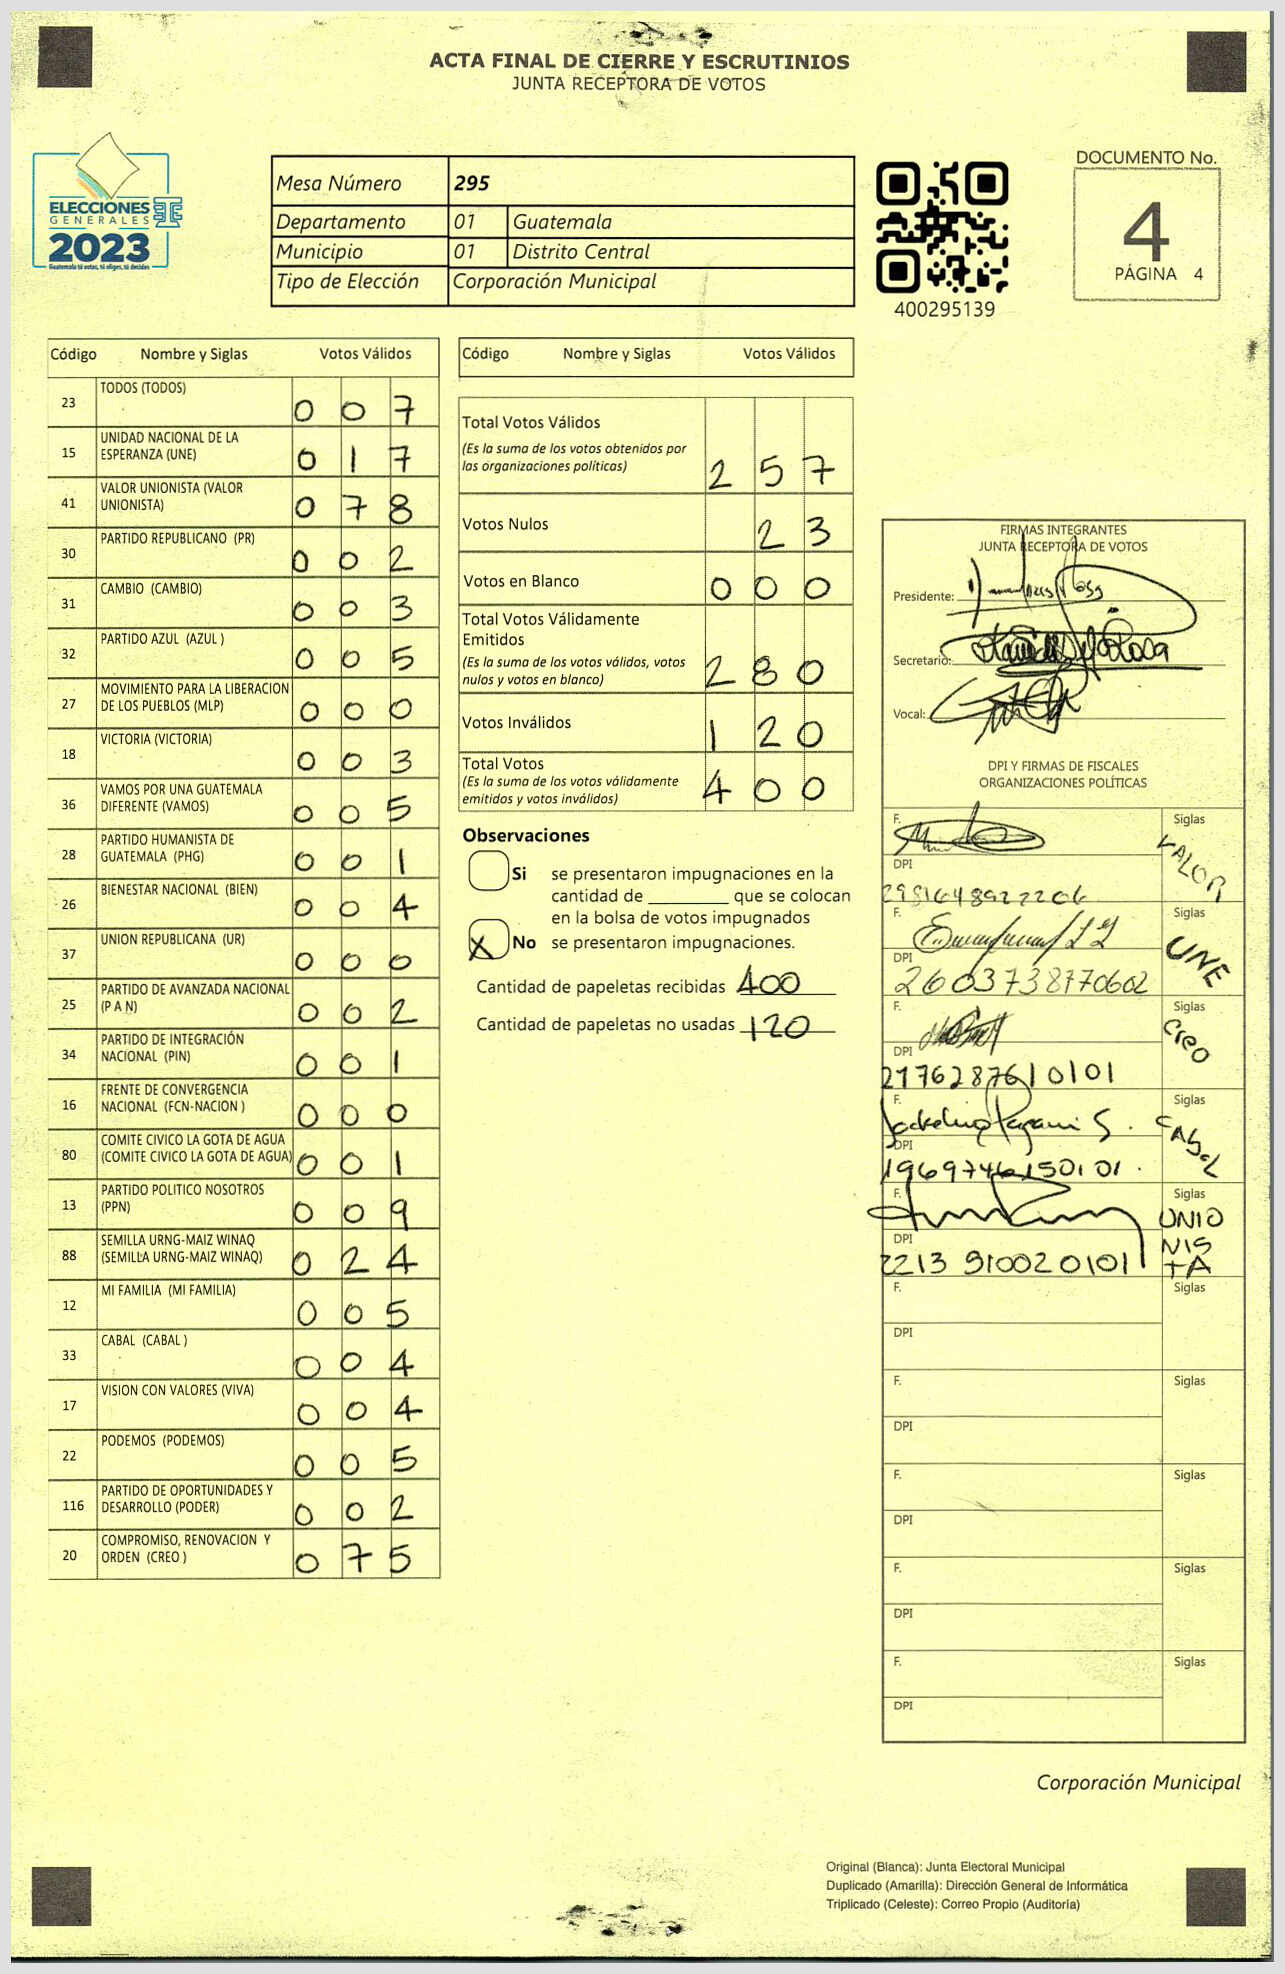 ACTA FINAL DE CIERRE Y ESCRUTINIOS
JUNTA RECEPTORA DE VOTOS
ELECCIONES
GENERALES
2023
Guatemala tú votas, tú eliges, tú decides
Mesa Número 295
Departamento 01 Guatemala
Municipio 01 Distrito Central
Tipo de Elección Corporación Municipal
400295139
DOCUMENTO No.
4
PÁGINA 4
Código Nombre y Siglas Votos Válidos
23 TODOS (TODOS) 0 0 7
15 UNIDAD NACIONAL DE LA
ESPERANZA (UNE) 0 1 7
41 VALOR UNIONISTA (VALOR
UNIONISTA) 0 7 8
30 PARTIDO REPUBLICANO (PR) 0 0 2
31 CAMBIO (CAMBIO) 0 0 3
32 PARTIDO AZUL (AZUL ) 0 0 5
27 MOVIMIENTO PARA LA LIBERACION
DE LOS PUEBLOS (MLP) 0 0 0
18 VICTORIA (VICTORIA) 0 0 3
36 VAMOS POR UNA GUATEMALA
DIFERENTE (VAMOS) 0 0 5
28 PARTIDO HUMANISTA DE
GUATEMALA (PHG) 0 0 1
26 BIENESTAR NACIONAL (BIEN) 0 0 4
37 UNION REPUBLICANA (UR) 0 0 0
25 PARTIDO DE AVANZADA NACIONAL
(P A N) 0 0 2
34 PARTIDO DE INTEGRACIÓN
NACIONAL (PIN) 0 0 1
16 FRENTE DE CONVERGENCIA
NACIONAL (FCN-NACION ) 0 0 0
80 COMITE CIVICO LA GOTA DE AGUA
(COMITE CIVICO LA GOTA DE AGUA) 0 0 1
13 PARTIDO POLITICO NOSOTROS
(PPN) 0 0 9
88 SEMILLA URNG-MAIZ WINAQ
(SEMILLA URNG-MAIZ WINAQ) 0 2 4
12 MI FAMILIA (MI FAMILIA) 0 0 5
33 CABAL (CABAL ) 0 0 4
17 VISION CON VALORES (VIVA) 0 0 4
22 PODEMOS (PODEMOS) 0 0 5
116 PARTIDO DE OPORTUNIDADES Y
DESARROLLO (PODER) 0 0 2
20 COMPROMISO, RENOVACION Y
ORDEN (CREO ) 0 7 5
Código Nombre y Siglas Votos Válidos
Total Votos Válidos
(Es la suma de los votos obtenidos por
las organizaciones políticas) 2 5 7
Votos Nulos 2 3
Votos en Blanco 0 0 0
Total Votos Válidamente
Emitidos
(Es la suma de los votos válidos, votos
nulos y votos en blanco) 2 8 0
Votos Inválidos 1 2 0
Total Votos
(Es la suma de los votos válidamente
emitidos y votos inválidos) 4 0 0
Observaciones
Si se presentaron impugnaciones en la
cantidad de ________ que se colocan
en la bolsa de votos impugnados
X No se presentaron impugnaciones.
Cantidad de papeletas recibidas 400
Cantidad de papeletas no usadas 120
FIRMAS INTEGRANTES
JUNTA RECEPTORA DE VOTOS
Presidente:
Secretario:
Vocal:
DPI Y FIRMAS DE FISCALES
ORGANIZACIONES POLÍTICAS
F. Siglas
VALOR
DPI
F. Siglas
UNE
DPI
2603738770602
F. Siglas
CREO
DPI
2176287610101
F. Siglas
CABAL
DPI
1969746150101.
F. Siglas
UNIO
NIS
TA
DPI
2213 910020101
F. Siglas
DPI
F. Siglas
DPI
F. Siglas
DPI
F. Siglas
DPI
F. Siglas
DPI
Corporación Municipal
Original (Blanca): Junta Electoral Municipal
Duplicado (Amarilla): Dirección General de Informática
Triplicado (Celeste): Correo Propio (Auditoría)